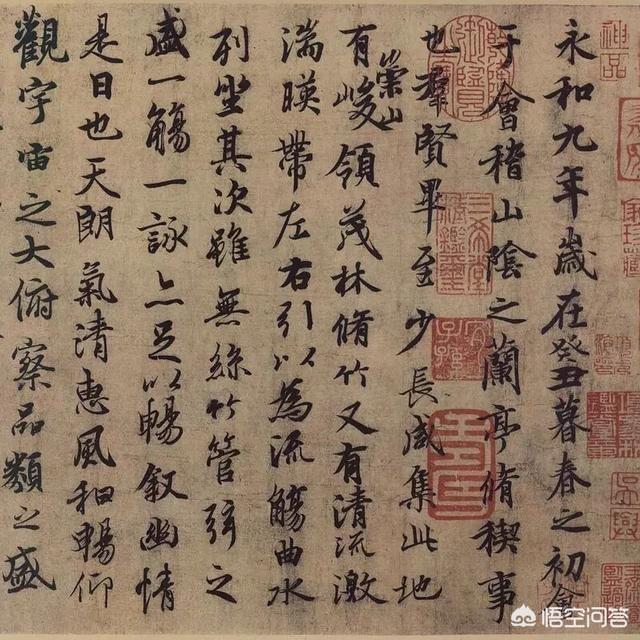 永和九年歲在癸丑暮春之初會
于會稽山陰之蘭亭脩稧事
也羣賢畢至少長咸集此地
有崇山峻領茂林脩竹又有清流激
湍暎帶左右引以為流觴曲水
列坐其次雖無絲竹管弦之
盛一觴一詠亦足以暢叙幽情
是日也天朗氣清惠風和暢仰
觀宇宙之大俯察品類之盛
神品
悟空问答